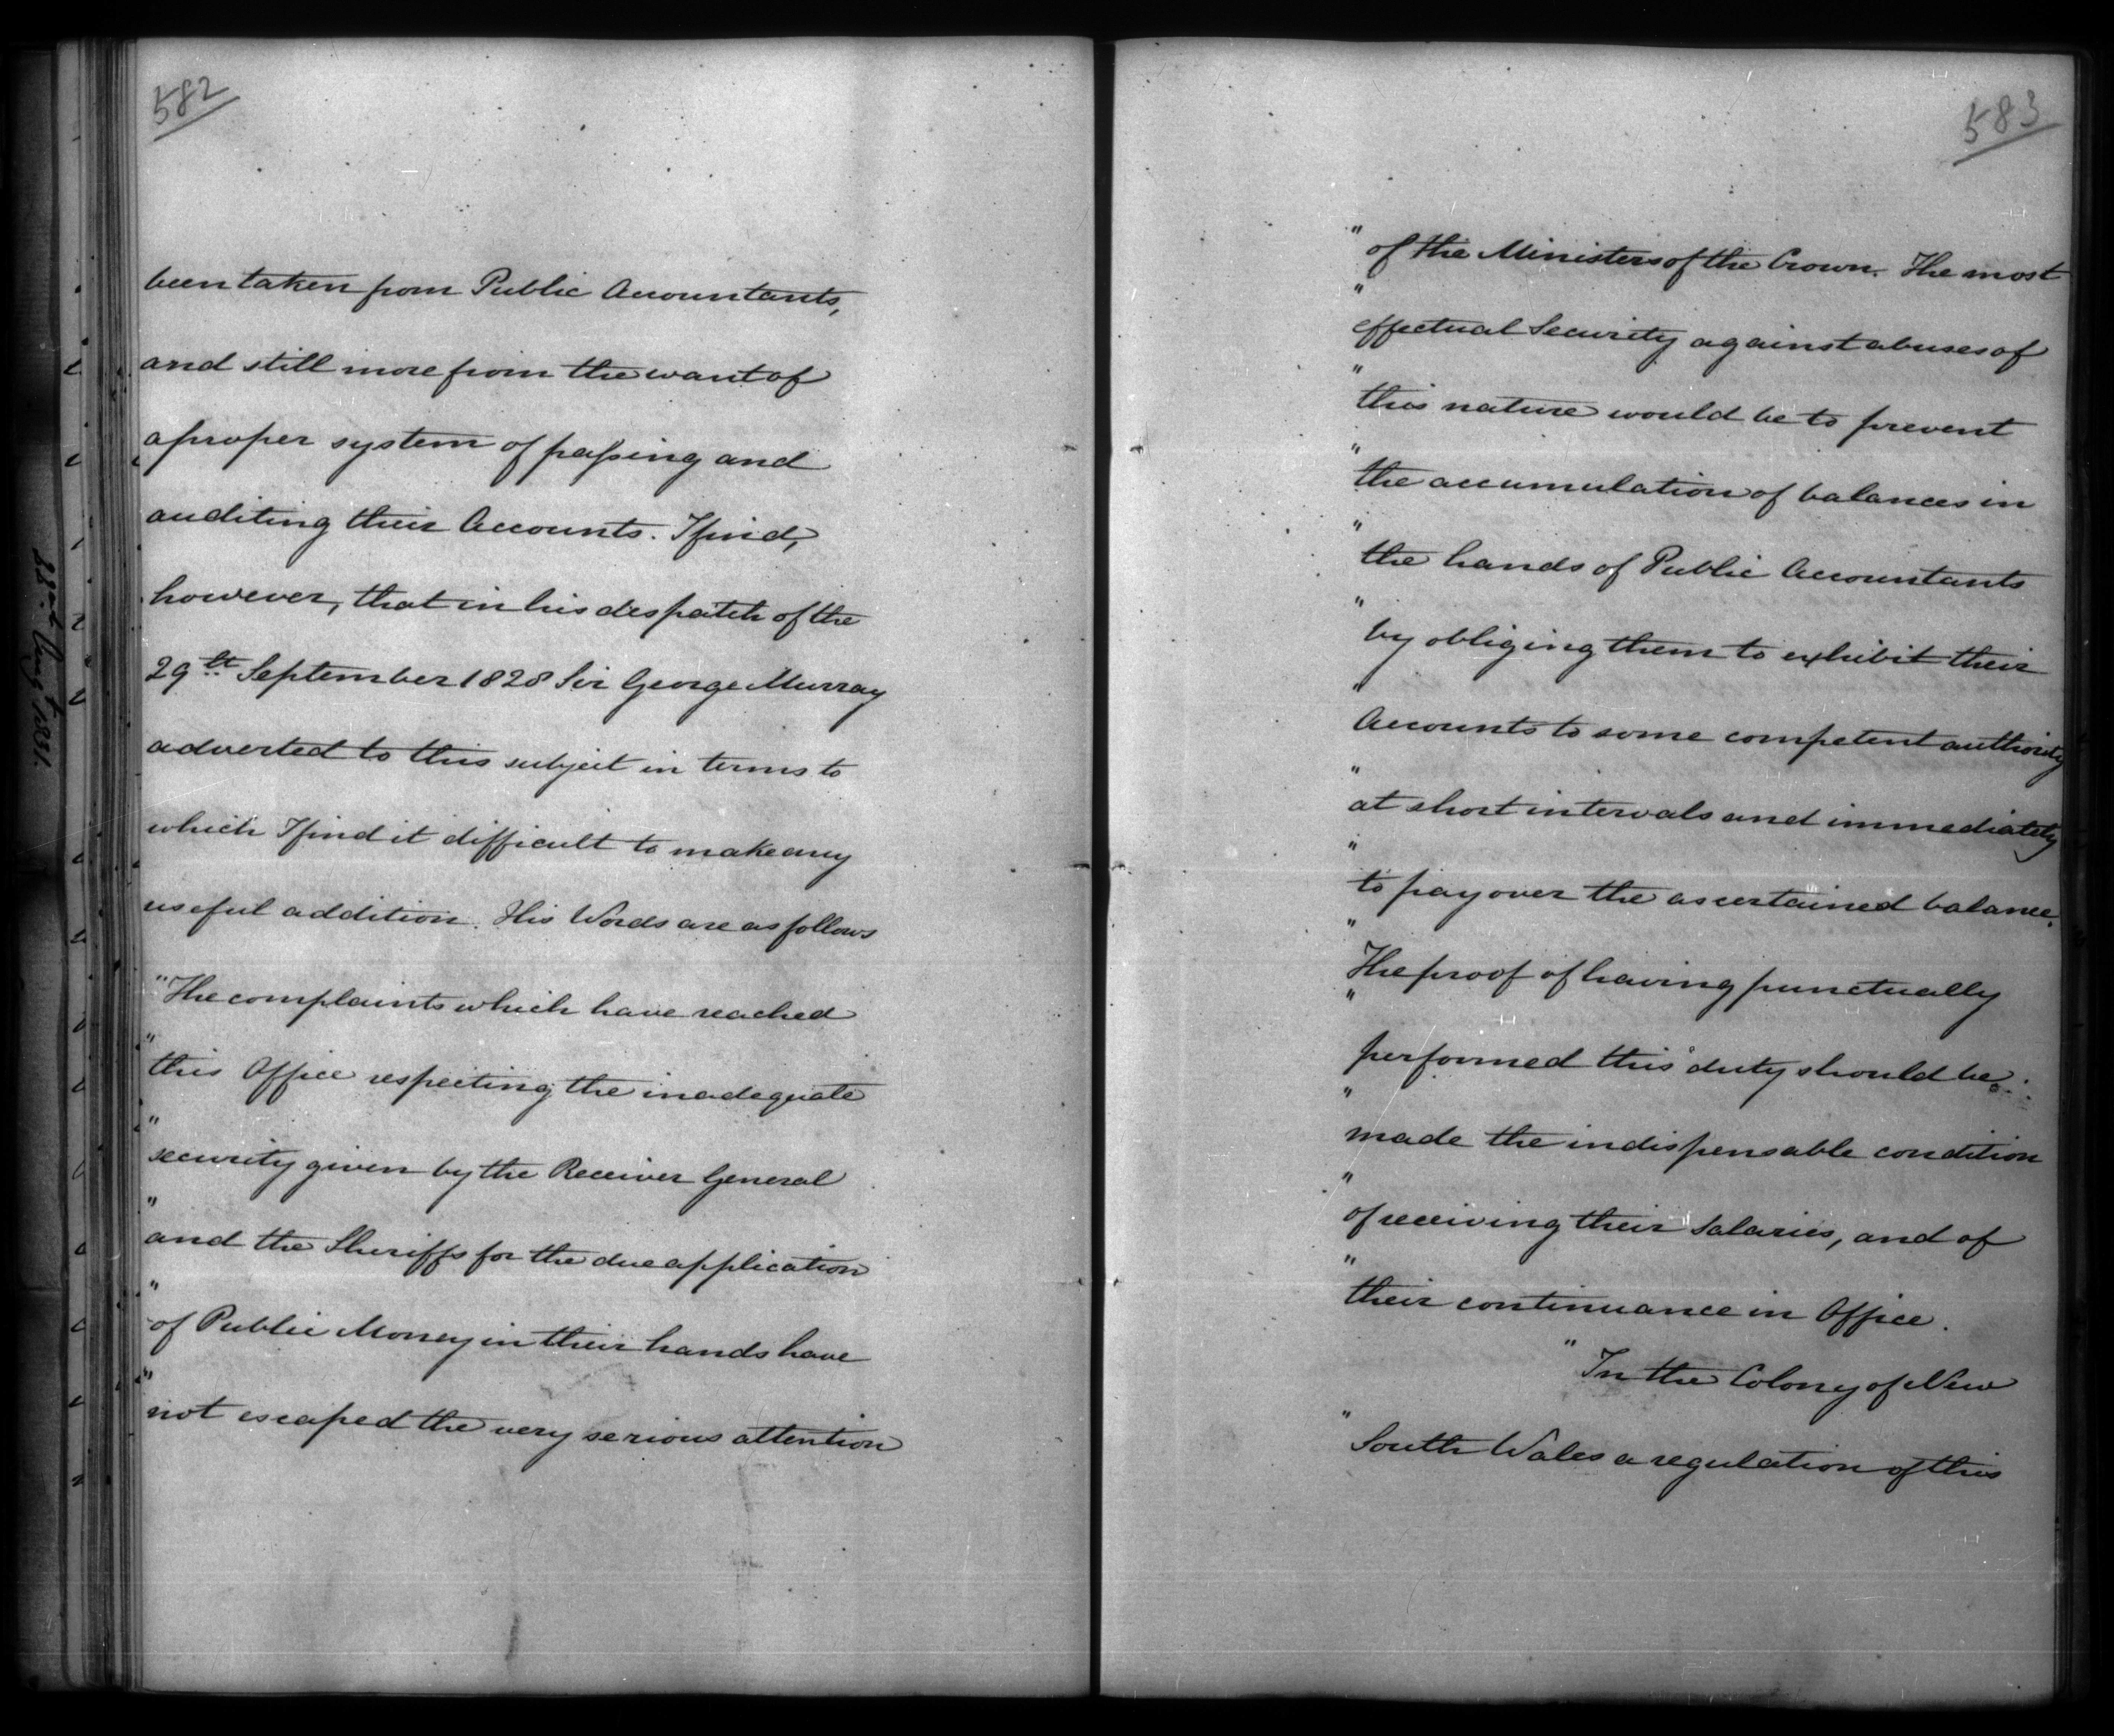 582
been taken from Public Accountants,
and still more from the want of
a proper system of paſsing and
auditing their Accounts. I find,
however, that in his despatch of the
29th September 1828 Sir George Murray
adverted to this subject in terms to
which I find it difficult to make any
useful addition. His Words are as follows
"The complaints which have reached
" this Office respecting the inadequate
" security given by the Receiver General
" and the Sheriffs for the due application
" of Public Money in their hands have
" not escaped the very serious attention
583
" of the Ministers of the Crown. The most
" effectual Security against abuses of
" this nature would be to prevent
" the accumulation of balances in
" the hands of Public Accountants
" by obliging them to exhibit their
" Accounts to some competent authority
" at short intervals and immediately
" to pay over the ascertained balance.
" The proof of having punctually
" performed this duty should be
" made the indispensable condition
" of receiving their Salaries, and of
" their continuance in Office.
" In the Colony of New
" South Wales a regulation of this
Augt 1831.